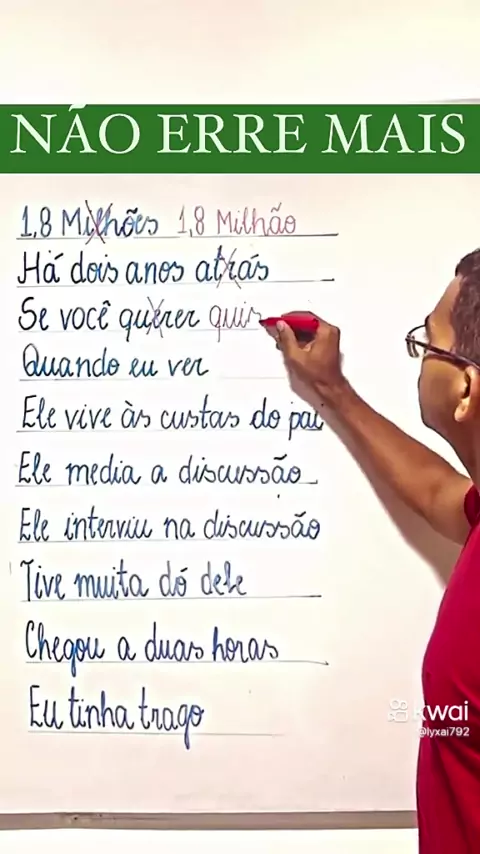 NÃO ERRE MAIS
1,8 Milhões 1,8 Milhão
Há dois anos atrás
Se você querer quis
Quando eu ver
Ele vive às custas do pai
Ele media a discussão
Ele interviu na discussão
Tive muita dó dele
Chegou a duas horas
Eu tinha trago
kwai
@lyxai792